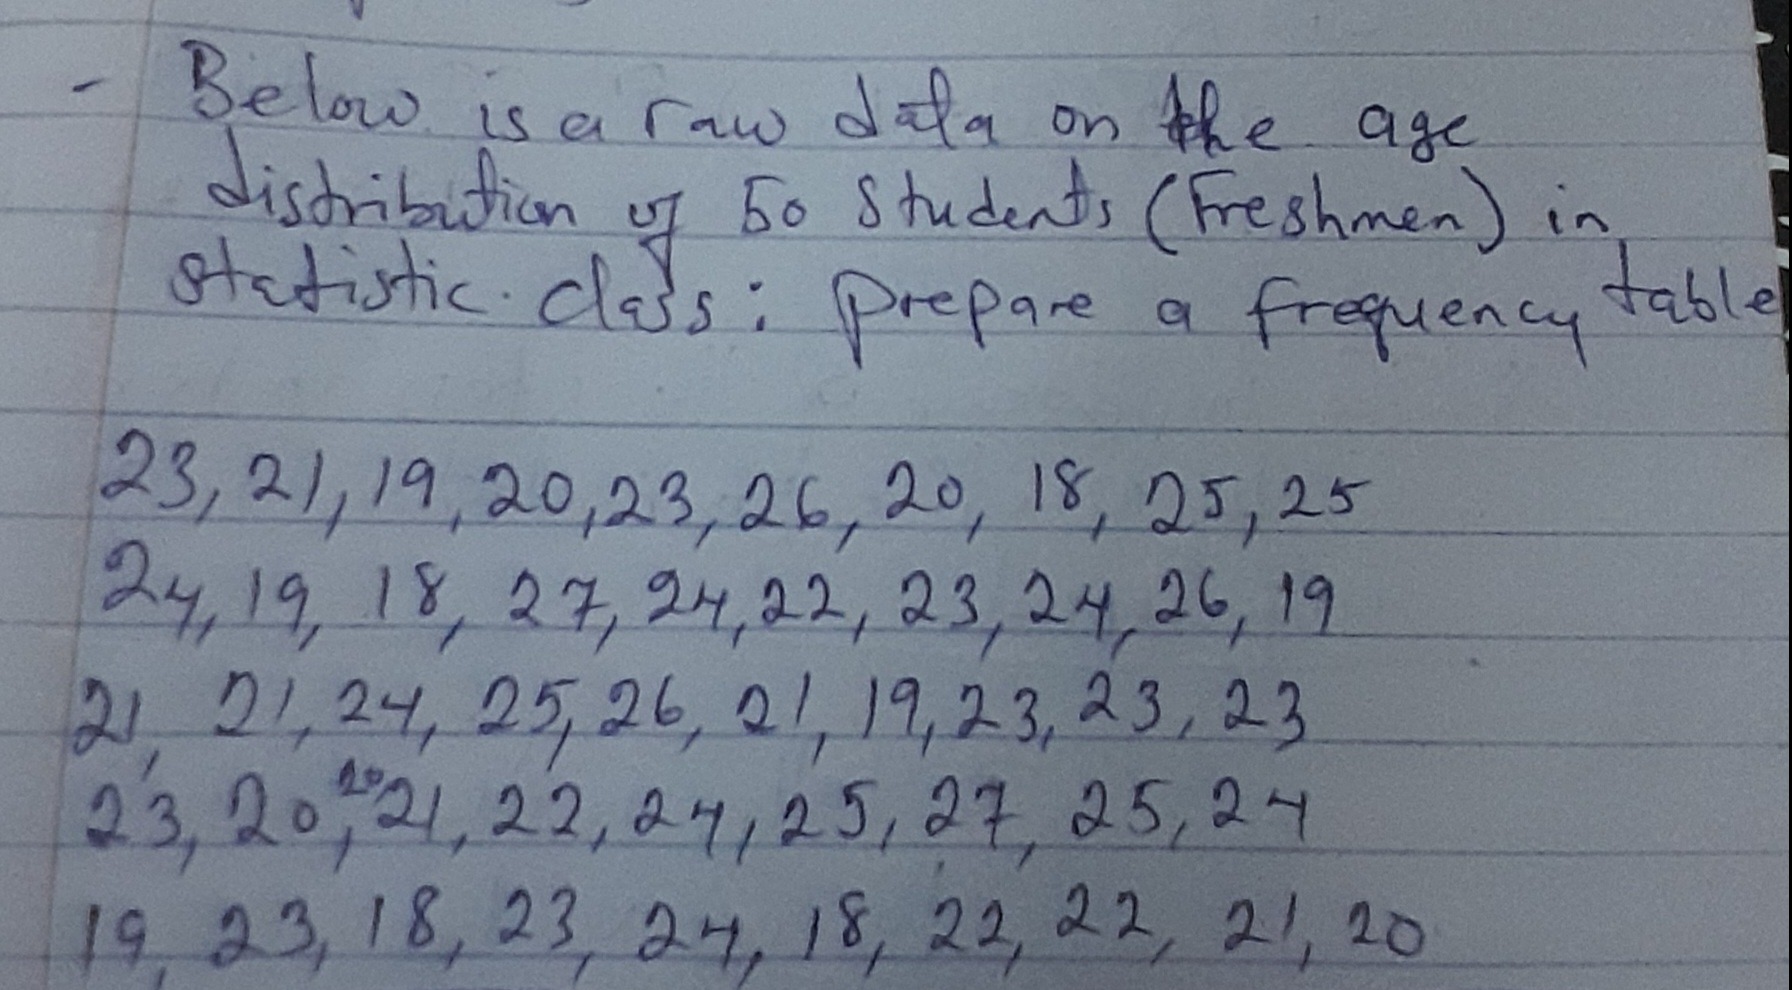 - Below is a raw data on the age
distribution of 50 Students (Freshmen) in
statistic class: prepare a frequency table
23, 21, 19, 20, 23, 26, 20, 18, 25, 25
24, 19, 18, 27, 24, 22, 23, 24, 26, 19
21, 21, 24, 25, 26, 21, 19, 23, 23, 23
23, 20, 20 21, 22, 24, 25, 27, 25, 24
19, 23, 18, 23, 24, 18, 22, 22, 21, 20